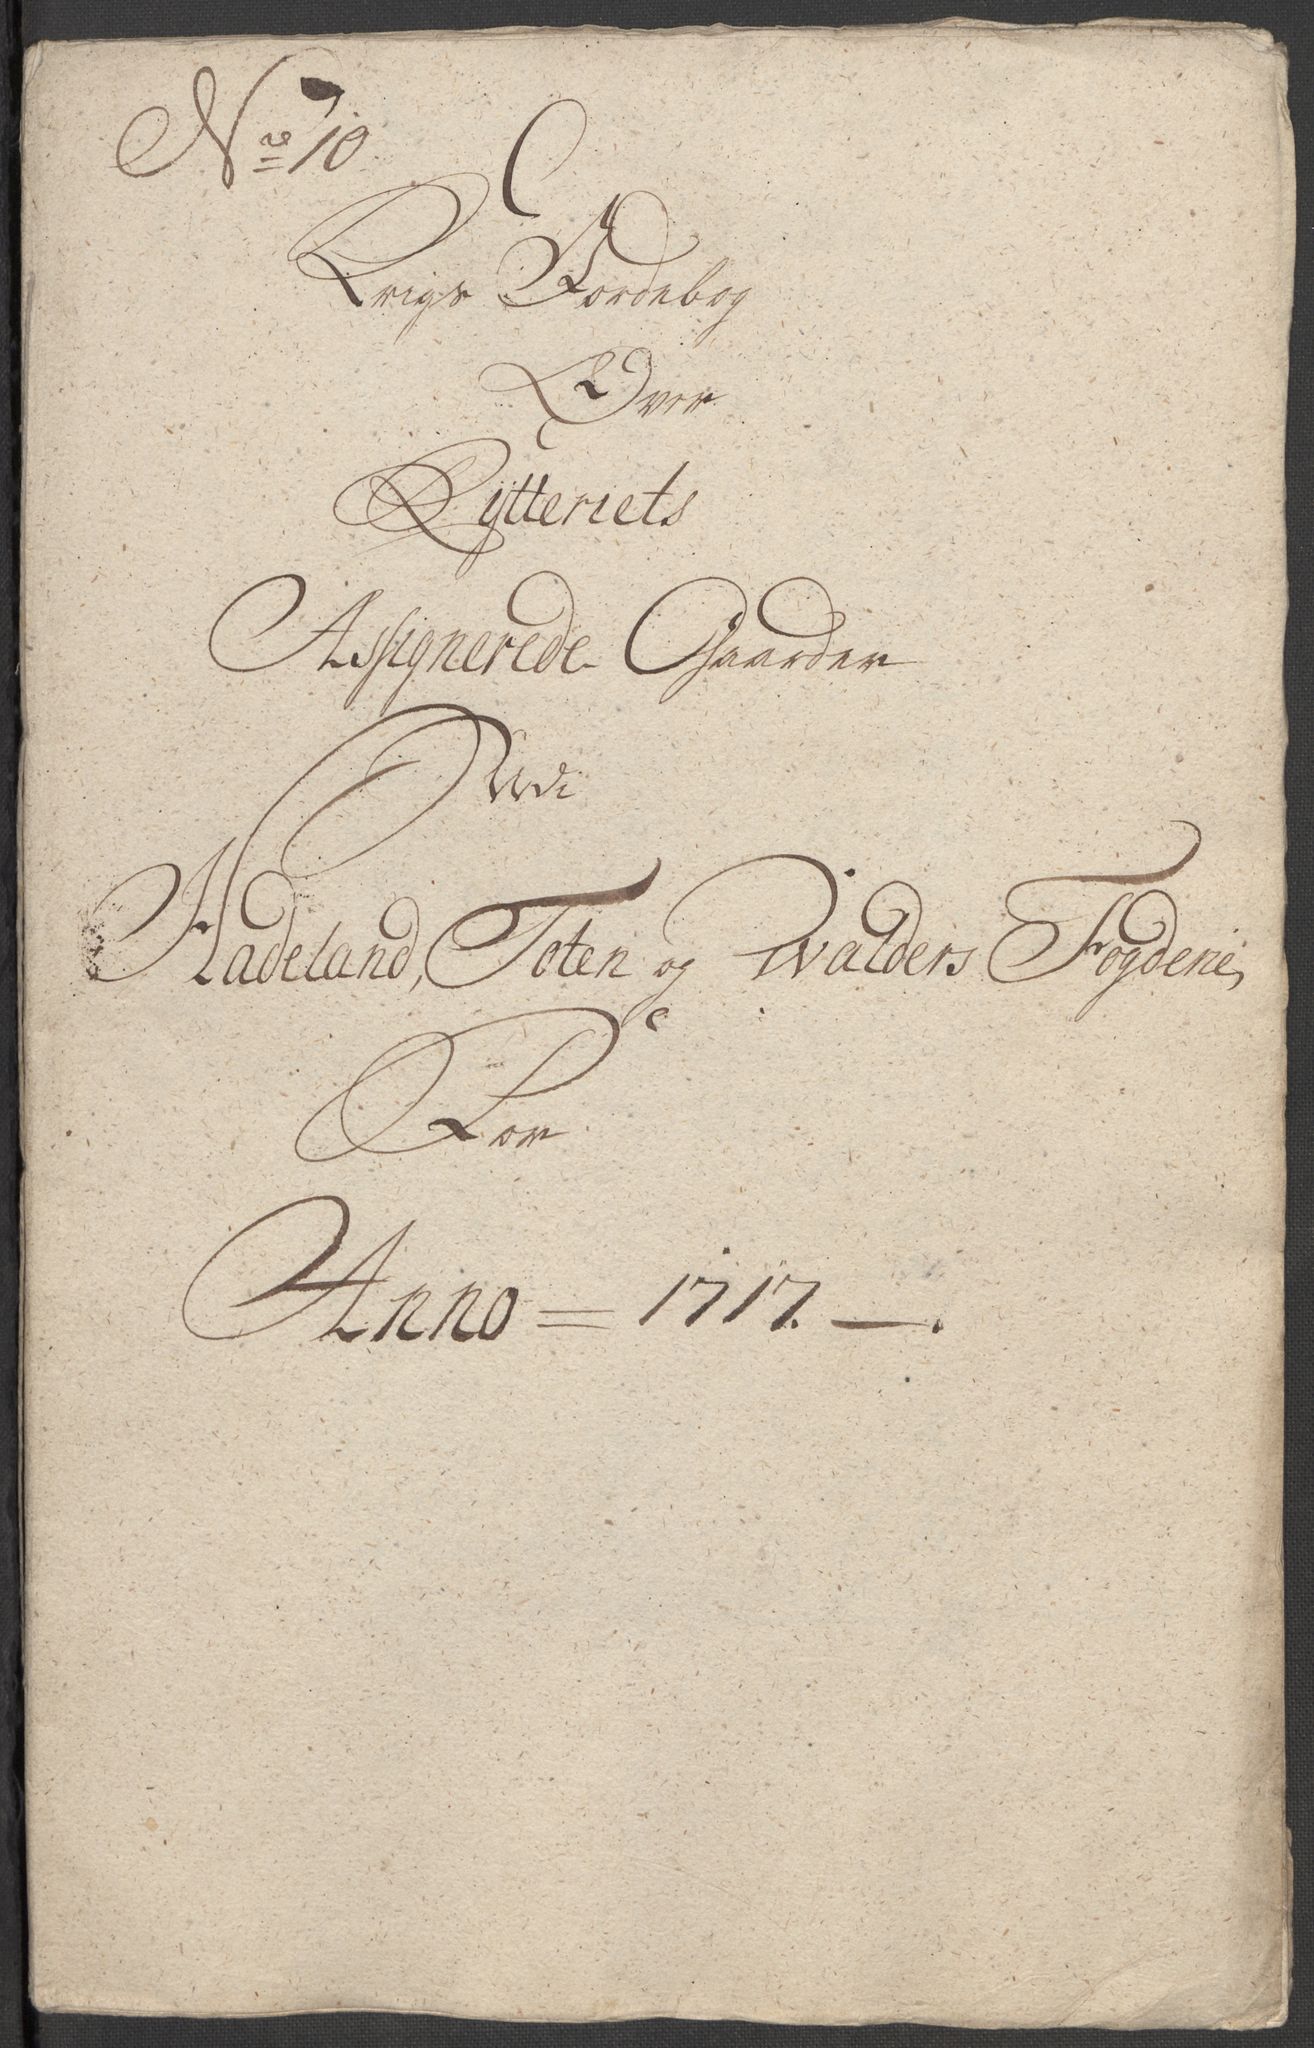 No 10
Krigs Jordebog
Over
Rytteriets
Assignerede Gaarder
Udi
Hadeland, Toten og Walders Fogderie,
For
Anno = 1717. —.